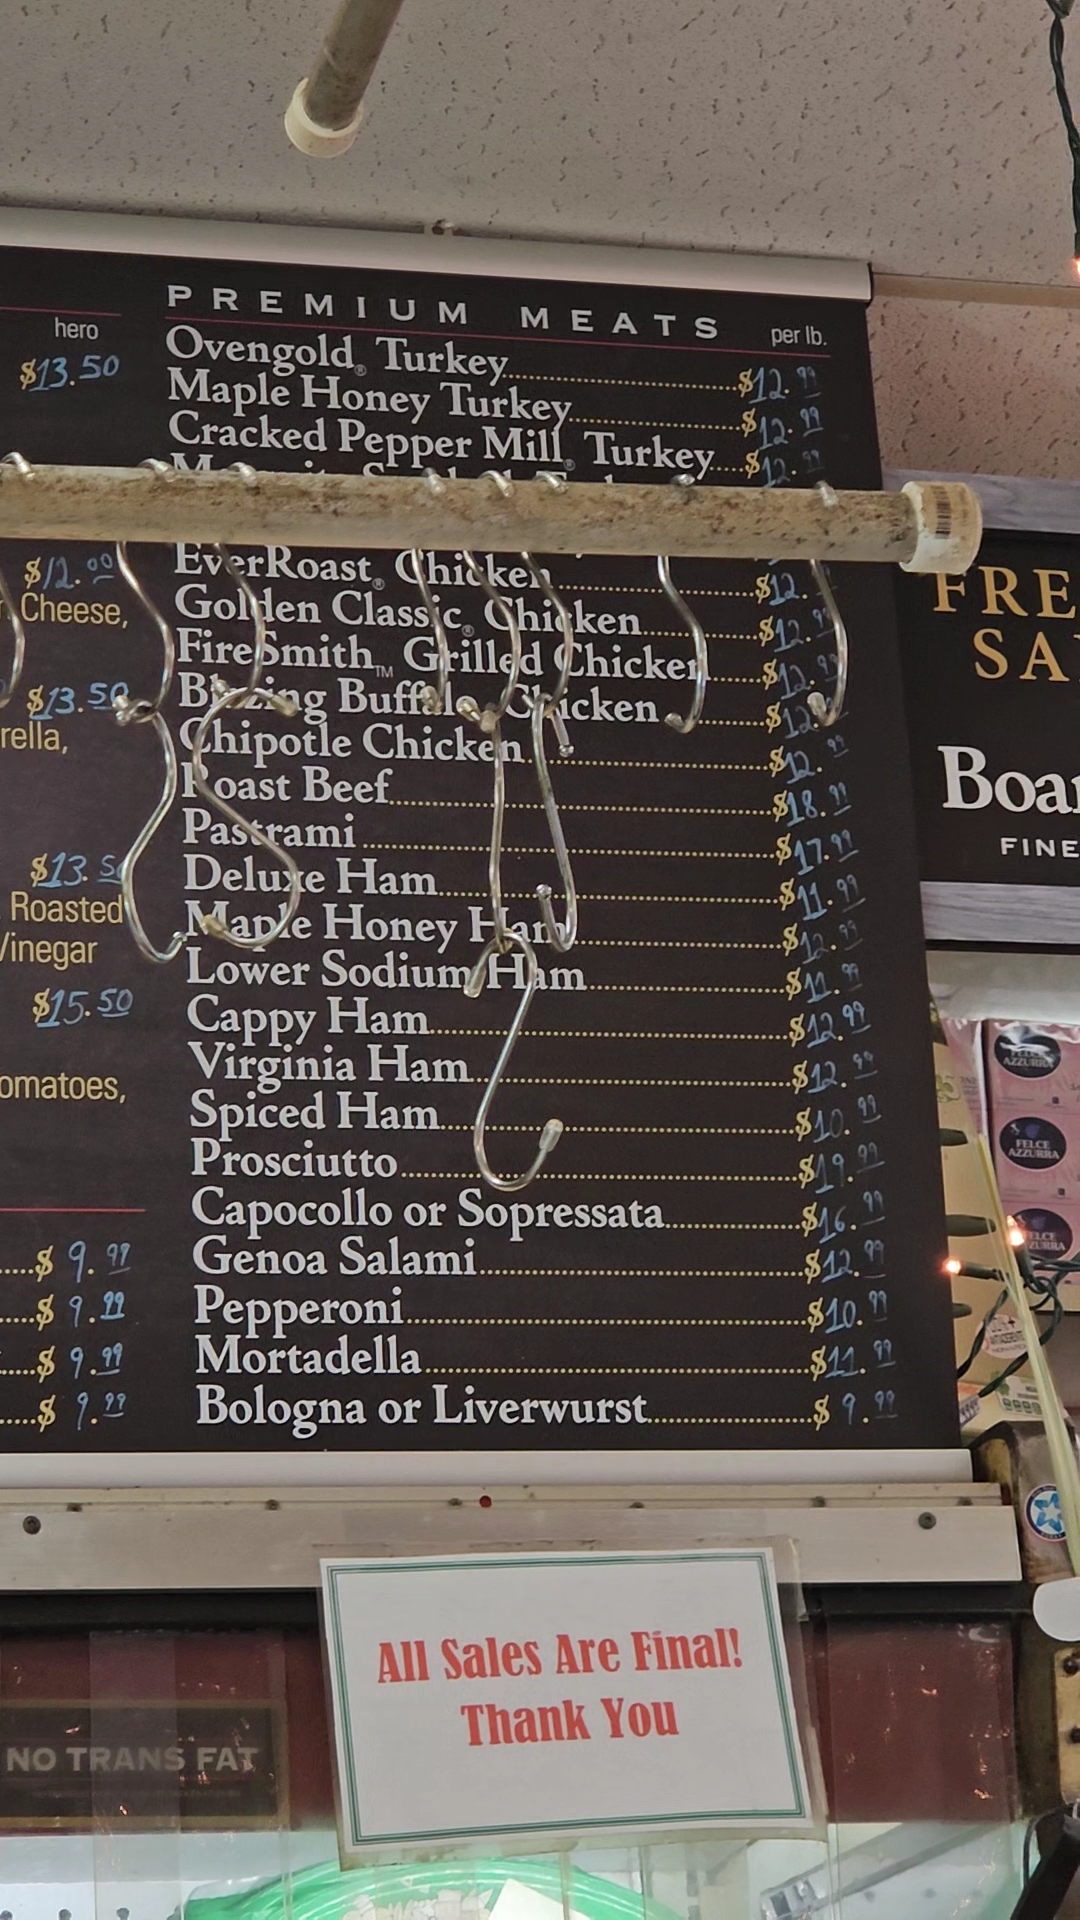 PREMIUM MEATS per lb.
hero
$13.50
Ovengold® Turkey $12.99
Maple Honey Turkey $12.99
Cracked Pepper Mill® Turkey $12.99
EverRoast® Chicken $12.
$12.00
Cheese,
Golden Classic® Chicken $12.99
FireSmith™ Grilled Chicken $12.99
$13.50
Blazing Buffalo Chicken $12.
rella,
Chipotle Chicken $12.99
Roast Beef $18.99
Pastrami $17.99
$13.50
Deluxe Ham $11.99
Roasted
Maple Honey Ham $12.99
Vinegar
Lower Sodium Ham $11.99
$15.50
Cappy Ham $12.99
Virginia Ham $12.99
omatoes,
Spiced Ham $10.99
Prosciutto $19.99
Capocollo or Sopressata $16.99
$9.99
Genoa Salami $12.99
$9.99
Pepperoni $10.99
$9.99
Mortadella $11.99
$9.99
Bologna or Liverwurst $9.99
FRE
SA
Boar
FINE
FELCE
AZZURRA
FELCE
AZZURRA
All Sales Are Final!
Thank You
NO TRANS FAT